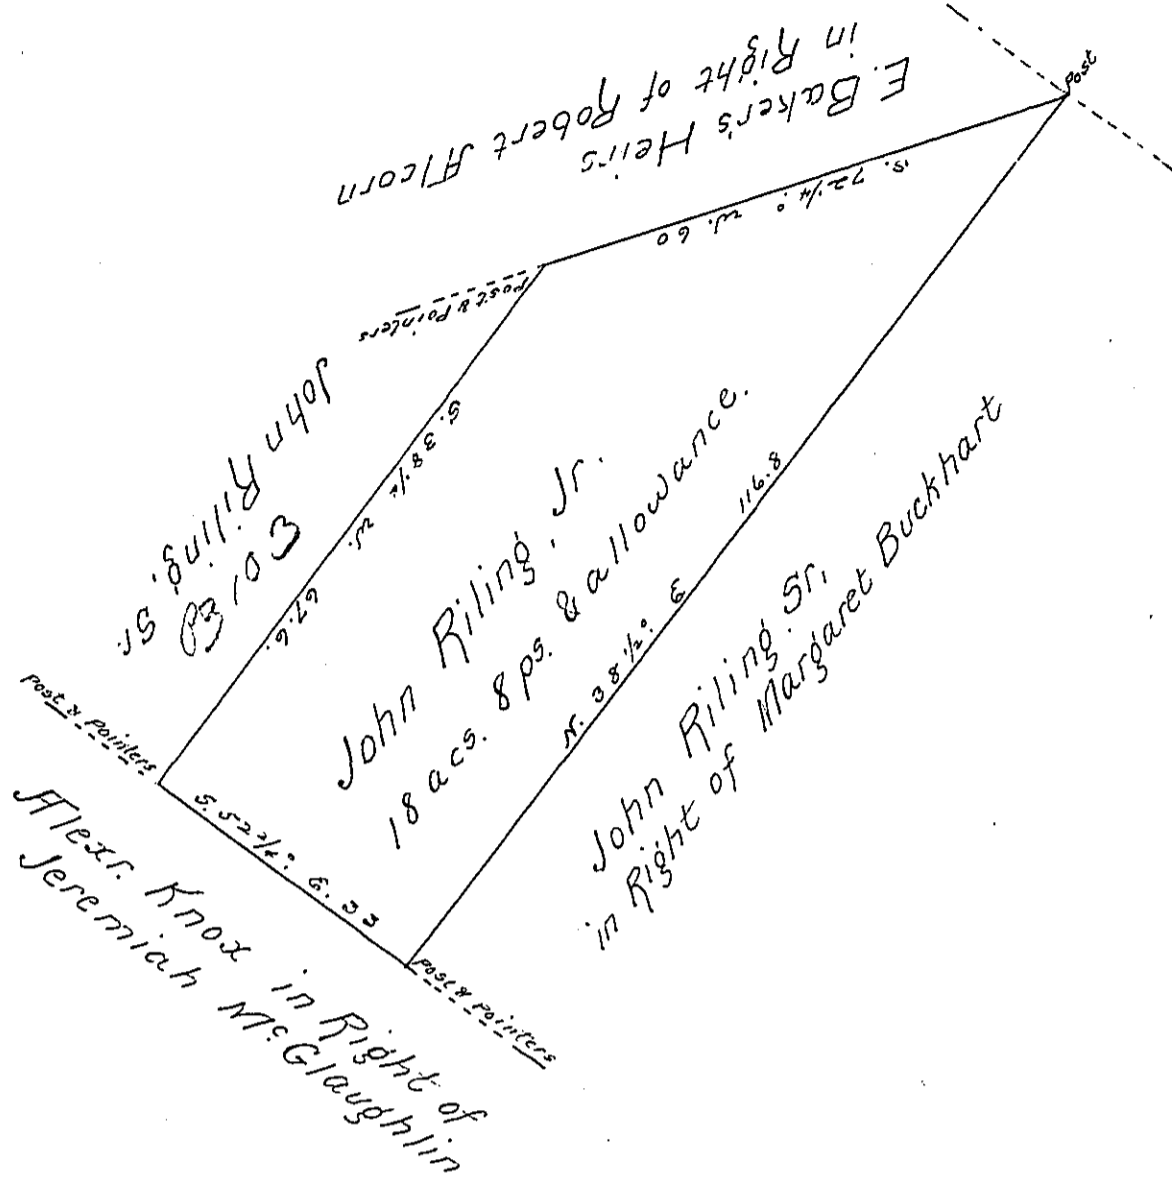 E. Baker's Heirs
in Right of Robert Alcorn
Post
S. 72 1/4° W. 60
Post & Pointers
John Riling, Sr.
S. 38 1/2 W. 67.6.
John Riling, Jr.
18 acs. 8 ps. & allowance.
N. 38 1/2° E 116.8
John Riling Sr.
in Right of Margaret Buckhart
Post & Pointers
S. 52 3/4° E. 33
Post & Pointers
Alexr. Knox in Right of
Jeremiah McGlaughlin